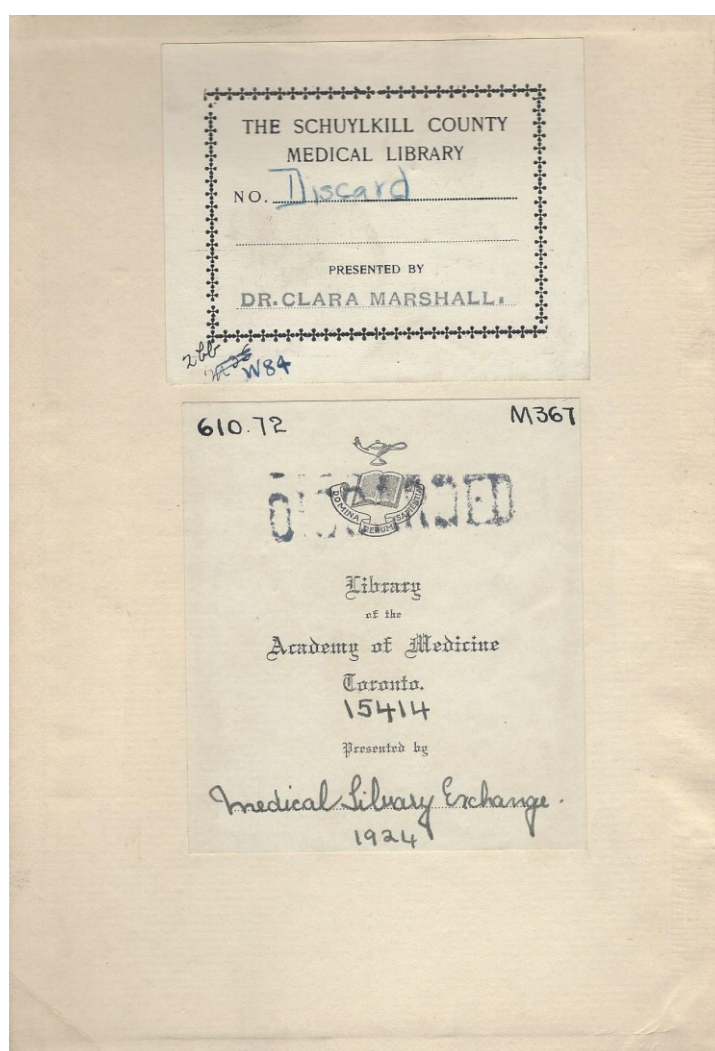 THE SCHUYLKILL COUNTY
MEDICAL LIBRARY
NO. Discard
PRESENTED BY
DR. CLARA MARSHALL.
266
W84
610.72 M367
DISCARDED
DOMINA RERUM SAPIENTIA
Library
of the
Academy of Medicine
Toronto.
15414
Presented by
Medical Library Exchange.
1924